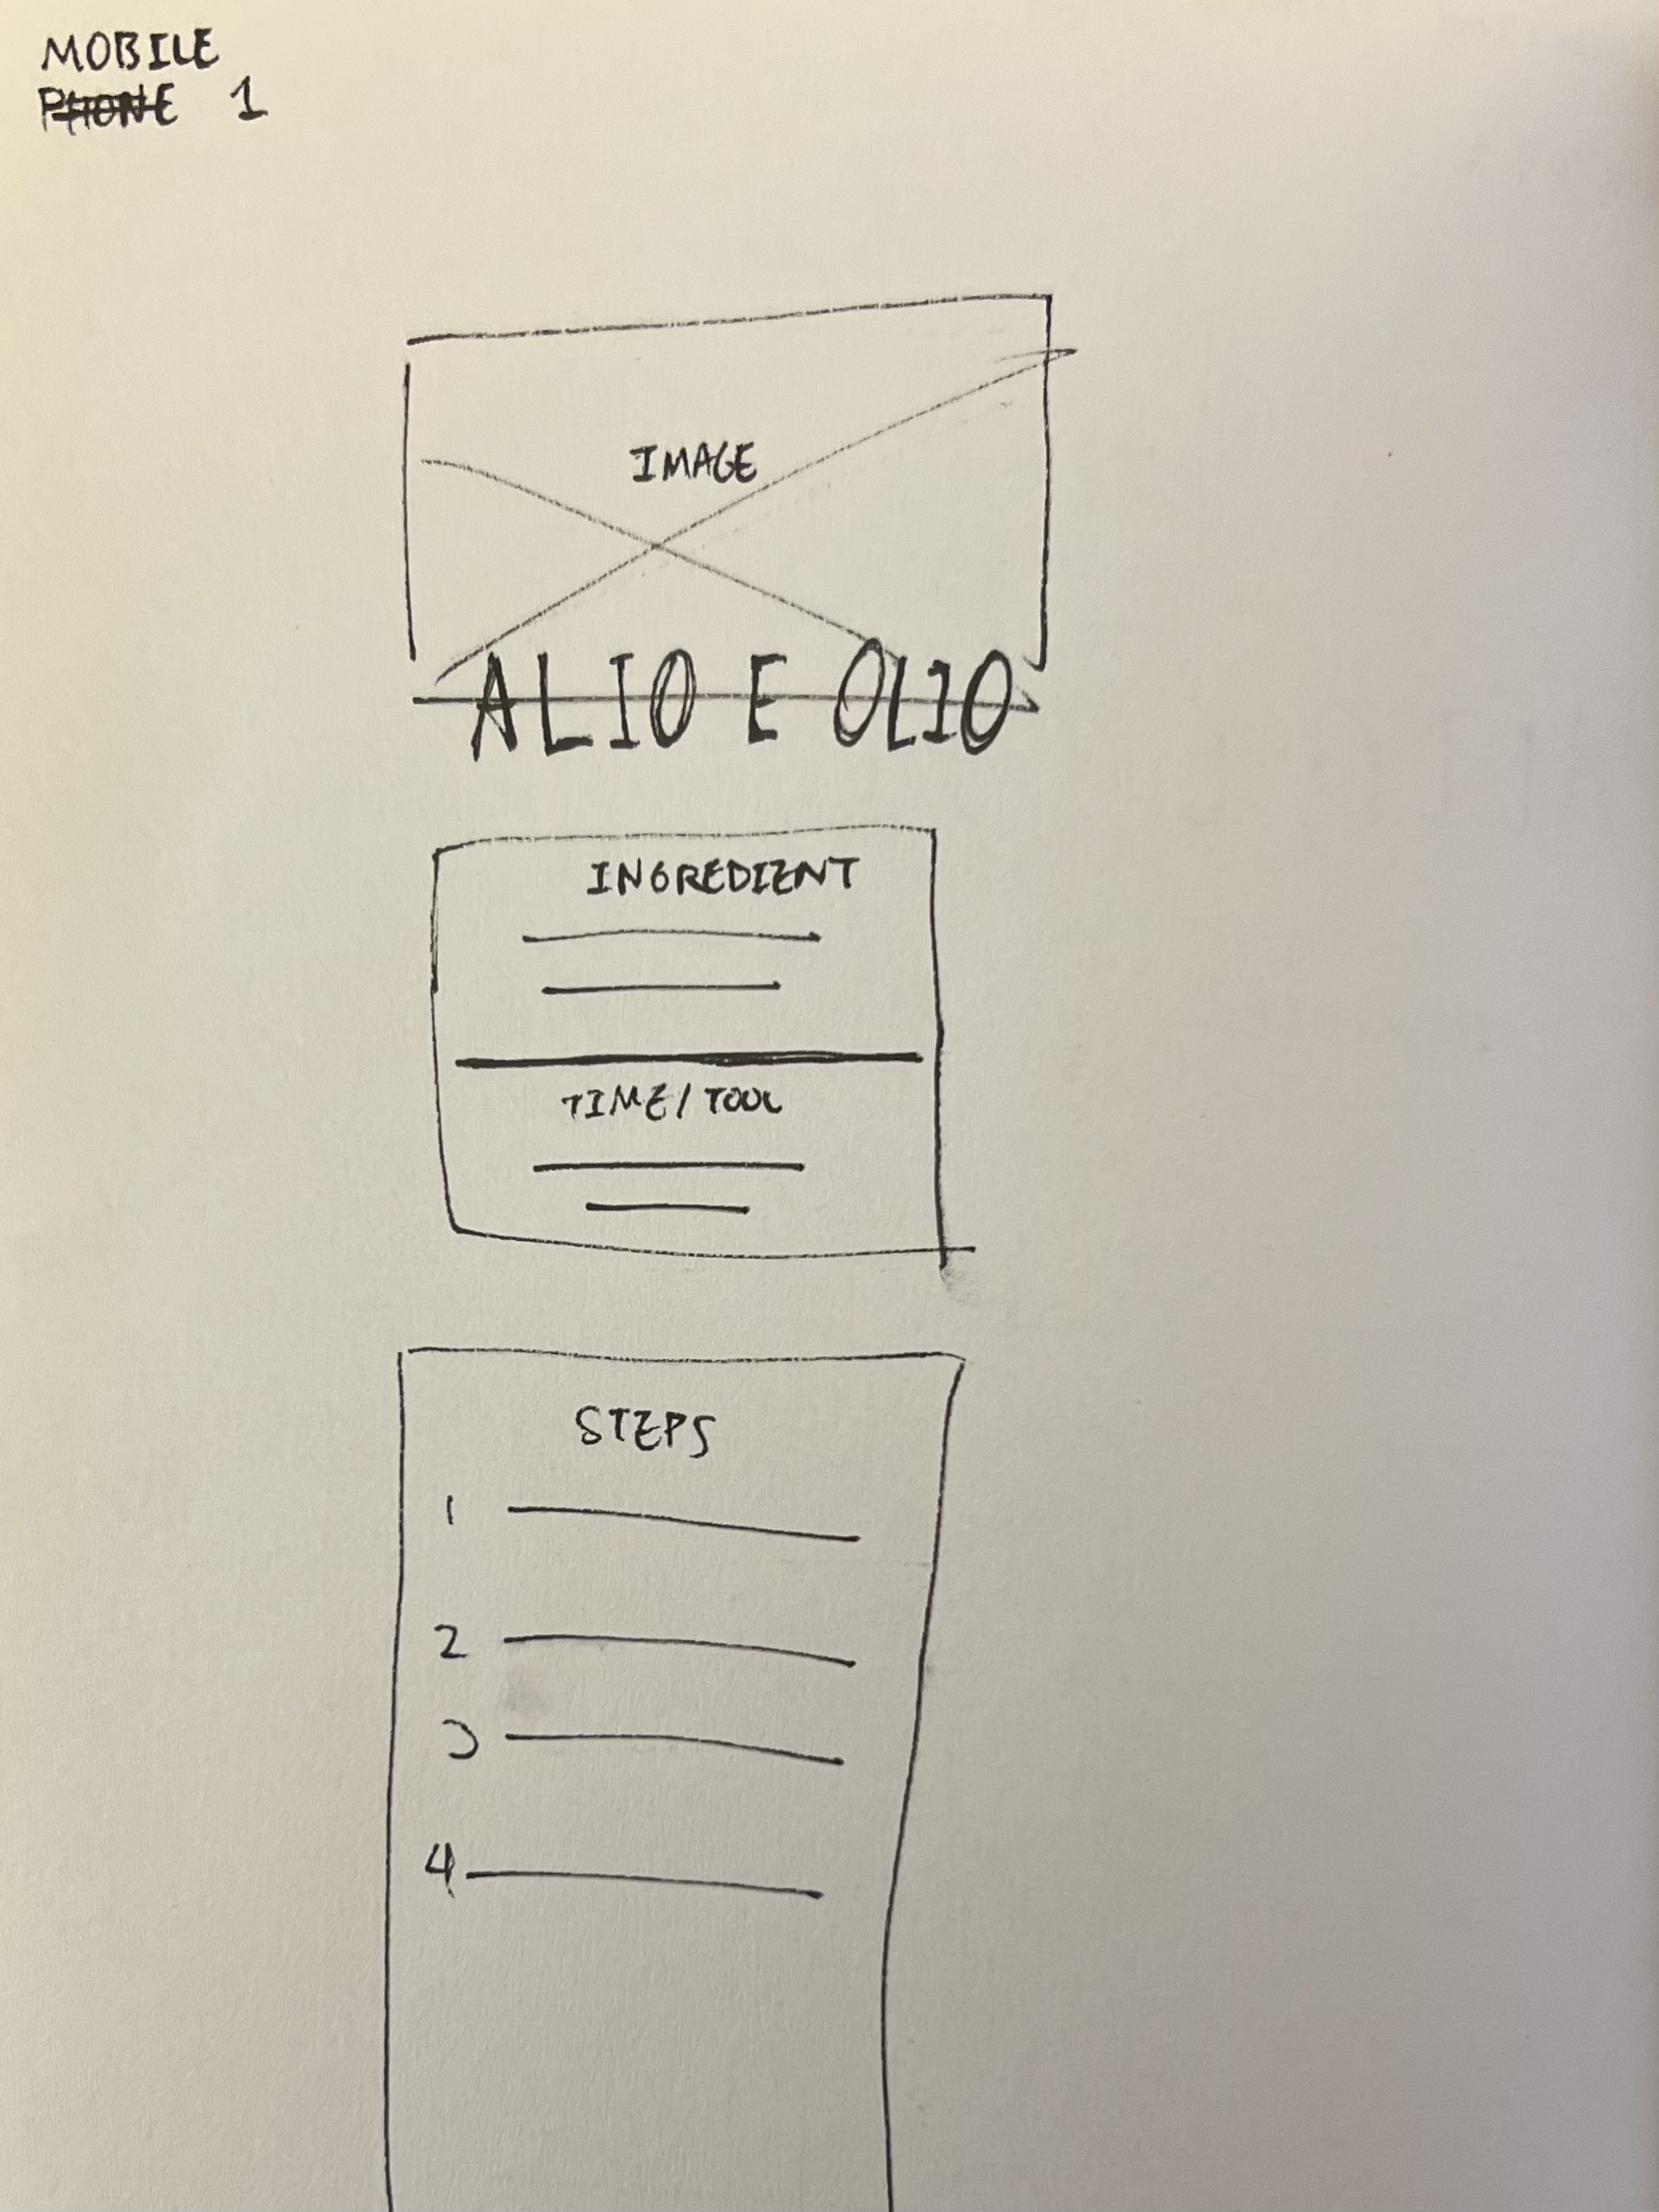 MOBILE
PHONE 1
IMAGE
ALIO E OLIO
INGREDIENT
TIME/TOOL
STEPS
1
2
3
4